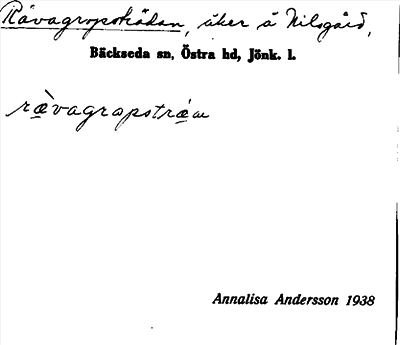 Rävagropsträdan, åker å Nilsgård,
Bäckseda sn, Östra hd, Jönk. l.
rævagropstrǽɑ
Annalisa Andersson 1938